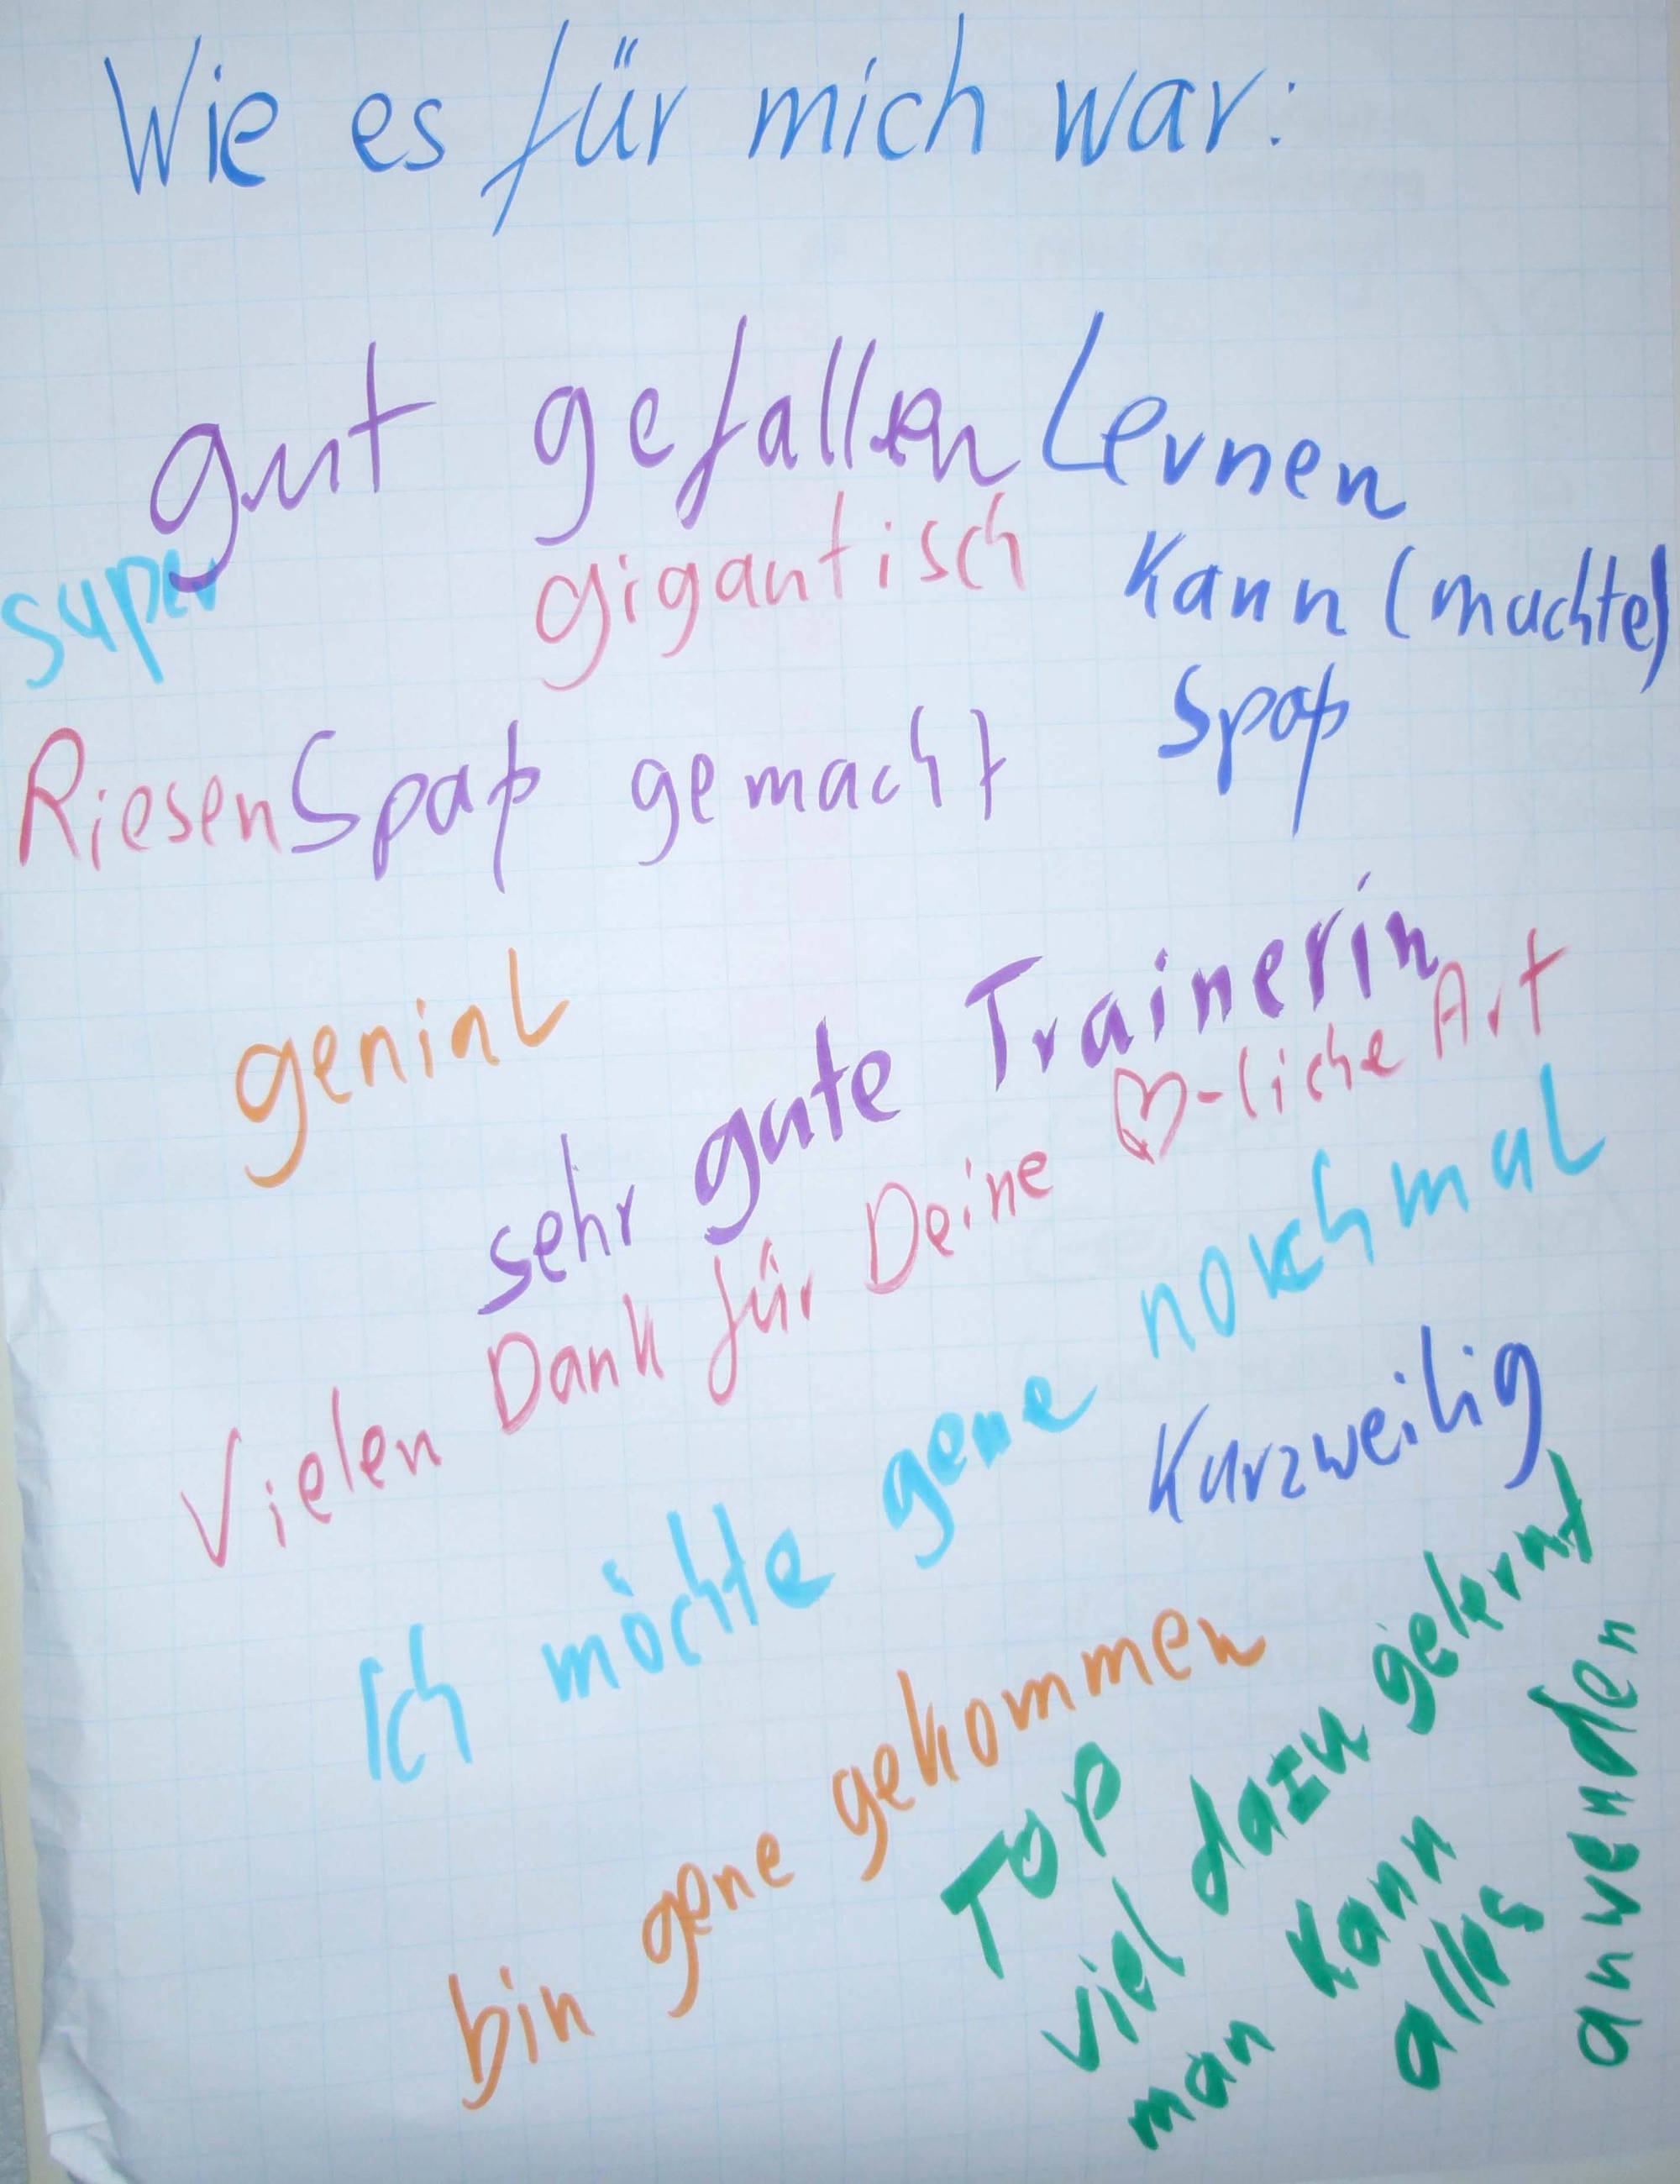 Wie es für mich war:
gut gefallen
Lernen
Kann (machte)
Spaß
super
gigantisch
RiesenSpaß gemacht
genial
sehr gute Trainerin
Vielen Dank für Deine ♡-liche Art
Ich möchte gerne nochmal
Kurzweilig
bin gerne gekommen
TOP
viel dazu gelernt
man kann
alles
anwenden